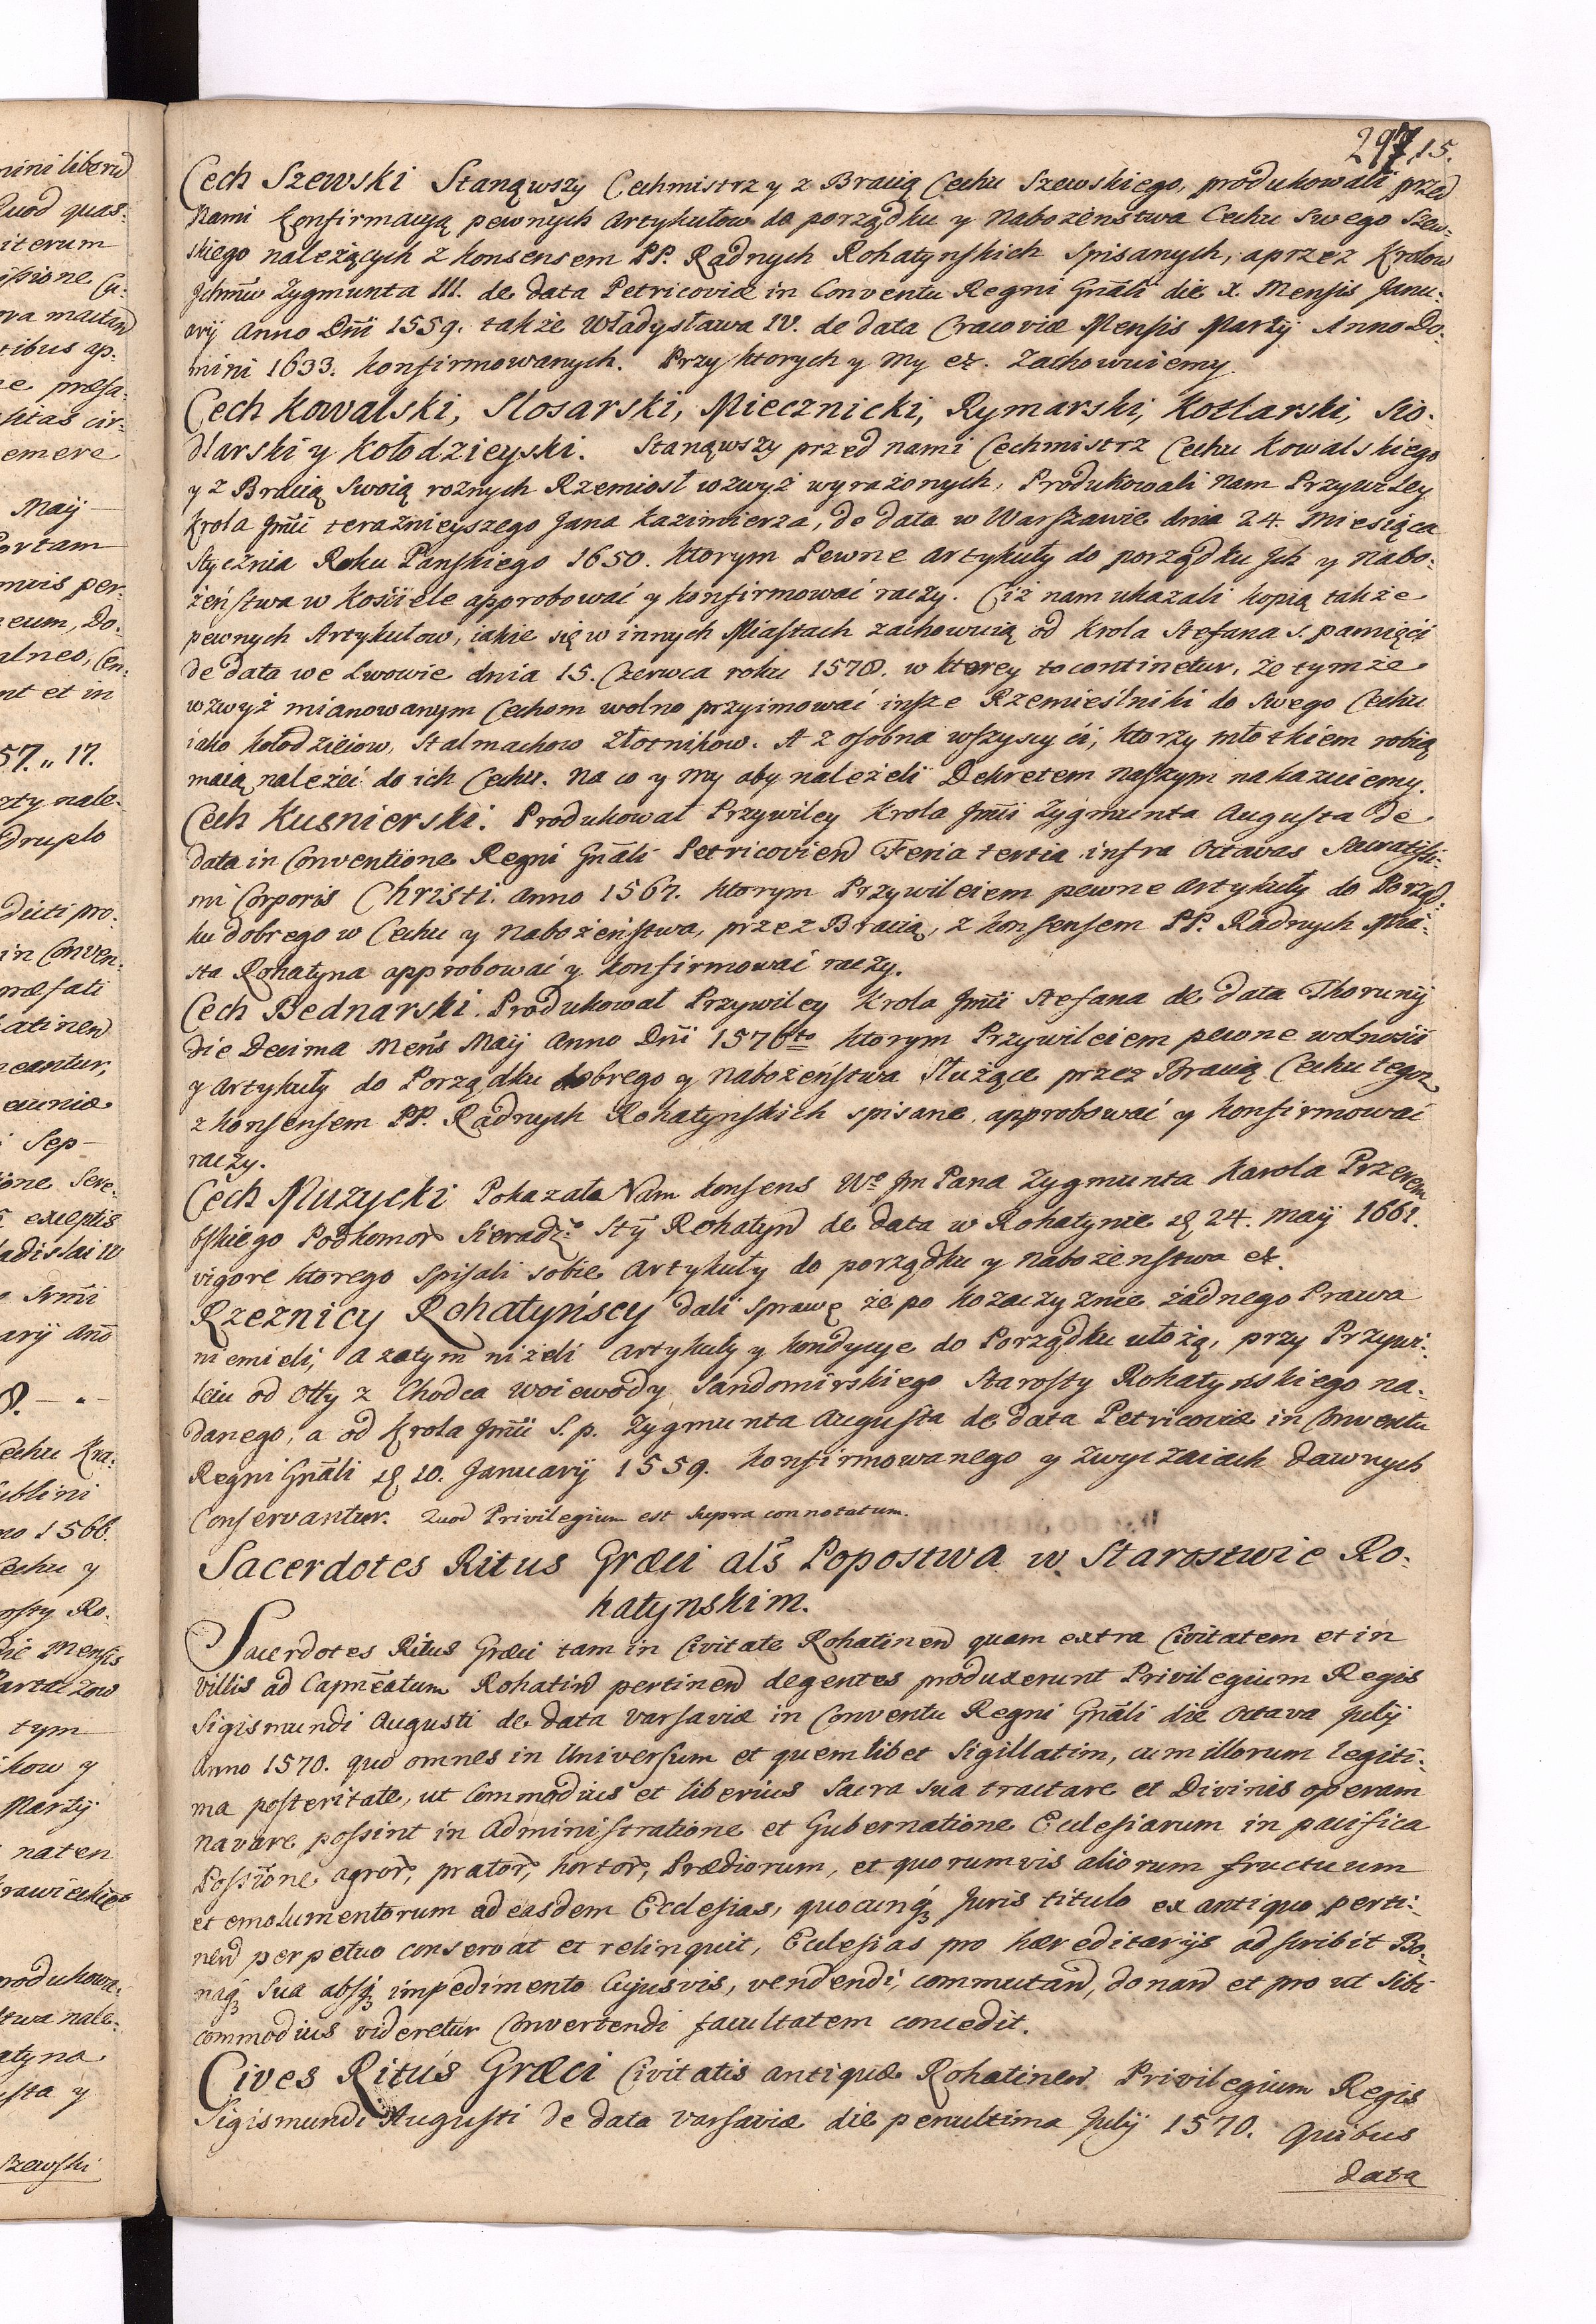 297 15.
Cech Szewski Stanąwszy Cechmistrz y z Bracią Cechu Szewskiego, produkowali przed
Nami Konfirmacyą pewnych Artykułow do porządku y Nabożeństwa Cechu Swego Szew-
skiego należących z konsensem PP. Radnych Rohatynskich Spisanych, a przez Krolow
Jchmw Zygmunta III. de data Petricoviæ in Conventu Regni Gnāli die X. Mensis Janu:
arij Anno Dni 1559. także Władysława IV. de data Cracoviæ Mensis Martij Anno Do:
mini 1633. konfirmowanych. Przy ktorych y My et. zachowuiemy.
Cech Kowalski, Slosarski, Miecznicki, Rymarski, Kotlarski, Sio:
dlarski y Kołodzieyski. Stanąwszy przed nami Cechmistrz Cechu Kowalskiego
y z Bracią Swoią roznych Rzemiosł wzwyż wyrażonych, Produkowali nam Przywiley
Krola Jmći teraznieyszego Jana Kazimierza, de data w Warszawie dnia 24. Miesiąca
Stycznia Roku Panskiego 1650. ktorym Pewne Artykuły do porządku Jch y nabo:
żeństwa w Kościele approbować y konfirmować raczy. Ciż nam ukazali kopią także
pewnych Artykułow, iakie się w innych Miastach zachowuią od Krola Stefana S. pamięci
de data we Lwowie dnia 15. Czerwca roku 1578. w ktorey to continetur, że tymże
wzwyż mianowanym Cechom wolno przyimować insze Rzemieślniki do Swego Cechu
iako kołodzieiow, Stalmachow Złotnikow. A z osobna wszyscy ci, ktorzy młotkiem robią
maią należeć do ich Cechu. na co y my aby należeli Dekretem naszym nakazuiemy.
Cech Kusnierski. Produkował Przywiley Krola Jmći Zygmunta Augusta de
data in Conventione Regni Gnāli Petricovien Feria tertia infra Octavas Sacratissi:
mi Corporis Christi. Anno 1567. ktorym Przywileiem pewne Artykuły do Porząd:
ku dobrego w Cechu y nabożeństwa, przez Bracią, z konsensem PP. Radnych Mia:
sta Rohatyna approbować y konfirmować raczy.
Cech Bednarski. Produkował Przywiley Krola Jmći Stefana de data Thorunij
die Decima Mens Maij Anno Dni 1576to ktorym Przywileiem pewne wolności
y Artykuły do Porządku dobrego y nabożeństwa Służące przez Bracią Cechu tegoż
z konsensem PP. Radnych Rohatynskich spisane, approbować y konfirmować
raczy.
Cech Muzycki Pokazała Nam konsens Wo Jm Pana Zygmunta Karola Przerem
bskiego Podkomor Sieradz. Sty Rohatyn de data w Rohatynie 24. Maij 1661.
vigore ktorego Spisali sobie Artykuły do porządku y nabożenstwa et.
Rzeznicy Rohatyńscy dali Sprawę że po kozaczyznie żadnego Prawa
niemieli, a zatym niżeli Artykuły y kondycye do Porządku ułożą, przy Przywi:
leiu od Otty z Chodca Woiewody Sandomirskiego Starosty Rohatyńskiego na:
danego, a od Krola Jmći S.p. Zygmunta Augusta de data Petricoviæ in Conventu
Regni Gnāli 10. Januarij 1559. konfirmowanego y zwyczaiach dawnych
Conservantur. Quod Privilegium est supra connotatum.
Sacerdotes Ritus Græci als Popostwa w Starostwie Ro:
hatynskim.
Sacerdotes Ritus Græci tam in Civitate Rohatinen quam extra Civitatem et in
villis ad Capneatum Rohatin pertinen degentes produxerunt Privilegium Regis
Sigismundi Augusti de data Varsaviæ in Conventu Regni Gnāli die Octava Julij
Anno 1570. quo omnes in Universum et quemlibet Sigillatim, cum illorum legiti:
ma posteritate, ut Commodius et liberius Sacra sua tractare et Divinis operam
navare possint in Administratione et Gubernatione Ecclesiarum in pacifica
Possione agror, prator, hortor, Prædiorum, et quorumvis aliorum fructuum
et emolumentorum ad easdem Ecclesias, quocunq Juris titulo ex antiquo perti:
nen perpetuo conservat et relinquit, Ecclesias pro hæreditarijs adscribit Bo:
naq Sua absq impedimento Cujusvis, vendendi, commutand, donand et pro ut Sibi
commodius videretur Convertendi facultatem concedit.
Cives Ritus Græci Civitatis antiquæ Rohatinen. Privilegium Regis
Sigismundi Augusti de data Varsaviæ die penultima Julij 1570. Quibus
data